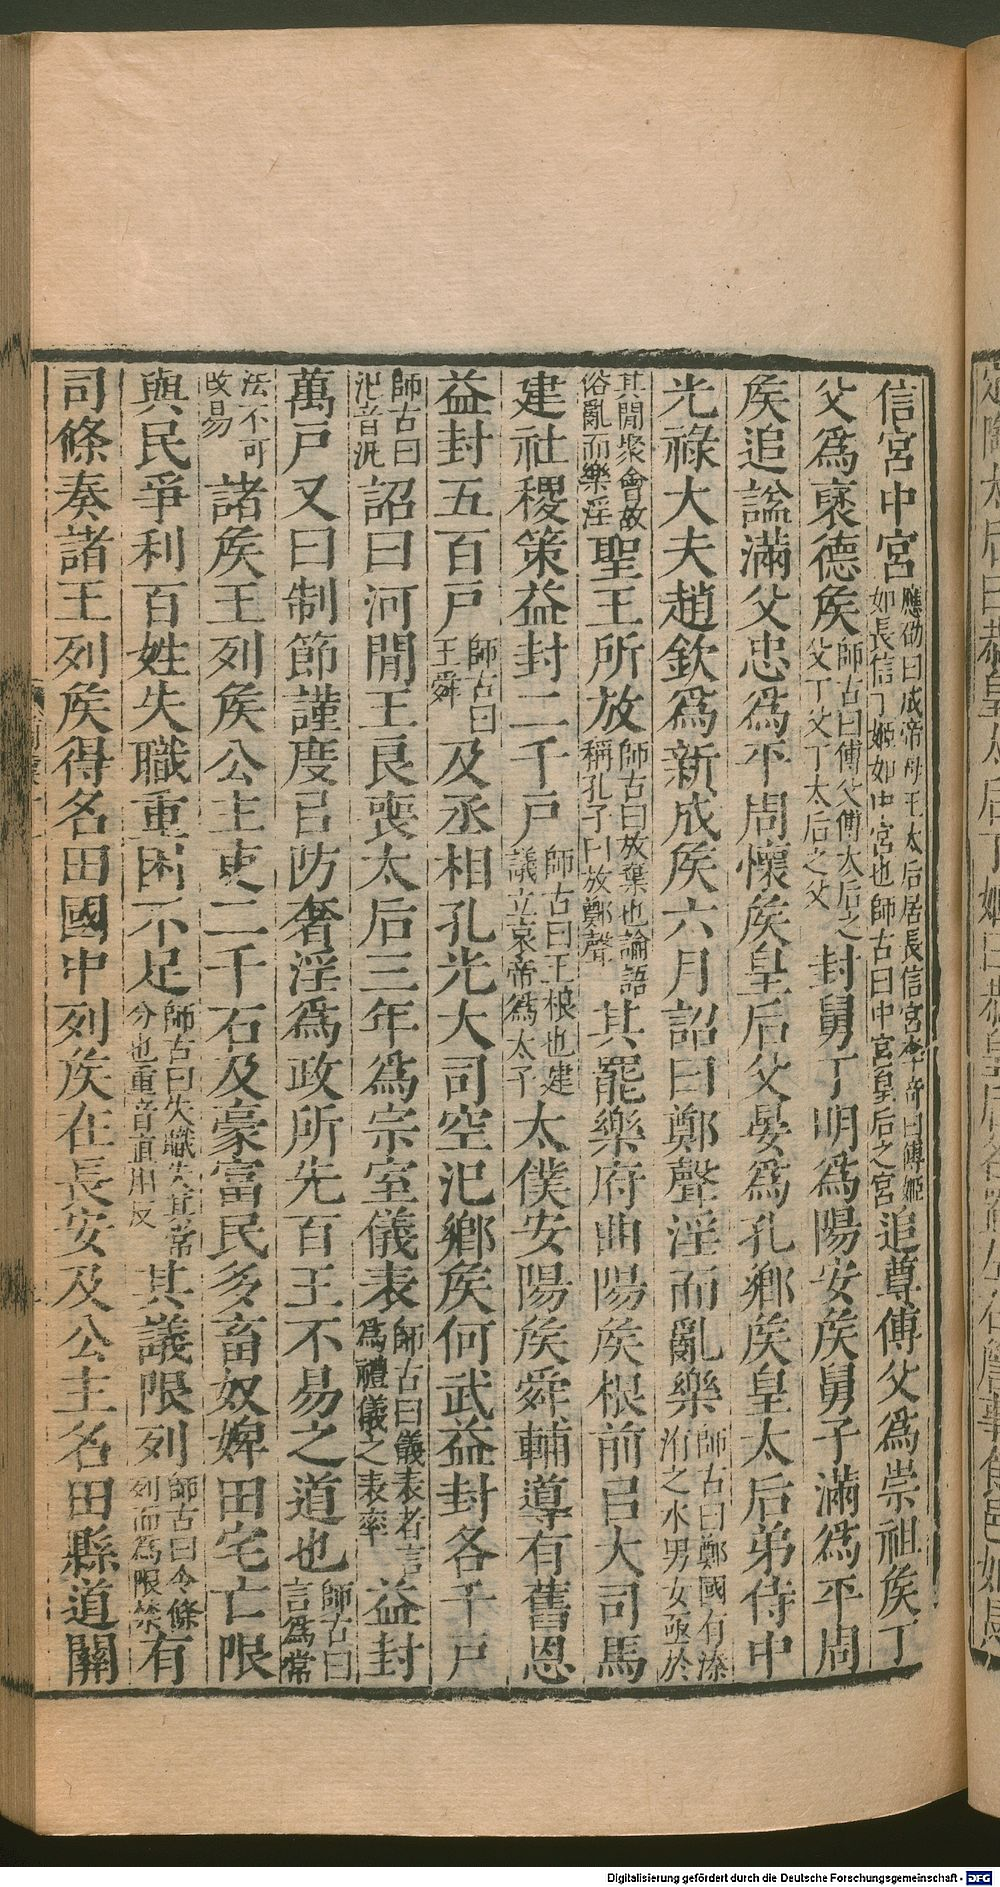 信宮中宮應劭曰成帝母王太后居長信宮李奇曰傅姬如長信丁姬如中宮也師古曰中宮皇后之宮追尊傅父爲崇祖矦丁
父爲襃德矦師古曰傅父傅太后之父丁父丁太后之父封舅丁明爲陽安矦舅子滿爲平周
矦追謚滿父忠爲平周懷矦皇后父晏爲孔鄉矦皇太后弟侍中
光祿大夫趙欽爲新成矦六月詔曰鄭聲淫而亂樂師古曰鄭國有溱洧之水男女亟於
其閒聚會故俗亂而樂淫聖王所放師古曰放棄也論語稱孔子曰放鄭聲其罷樂府曲陽矦根前㠯大司馬
建社稷策益封二千戸師古曰王根也建議立哀帝爲太子太僕安陽矦舜輔導有舊恩
益封五百戸師古曰王舜及丞相孔光大司空氾鄉矦何武益封各千戸
師古曰氾音汎詔曰河閒王良喪太后三年爲宗室儀表師古曰儀表者言爲禮儀之表率益封
萬戸又曰制節謹度㠯防奢淫爲政所先百王不易之道也師古曰言爲常
法不可改易諸矦王列矦公主吏二千石及豪富民多畜奴婢田宅亡限
與民爭利百姓失職重困不足師古曰失職失其常分也重音直用反其議限列師古曰令條列而爲限禁有
司條奏諸王列矦得名田國中列矦在長安及公主名田縣道關
Digitalisierung gefördert durch die Deutsche Forschungsgemeinschaft - DFG